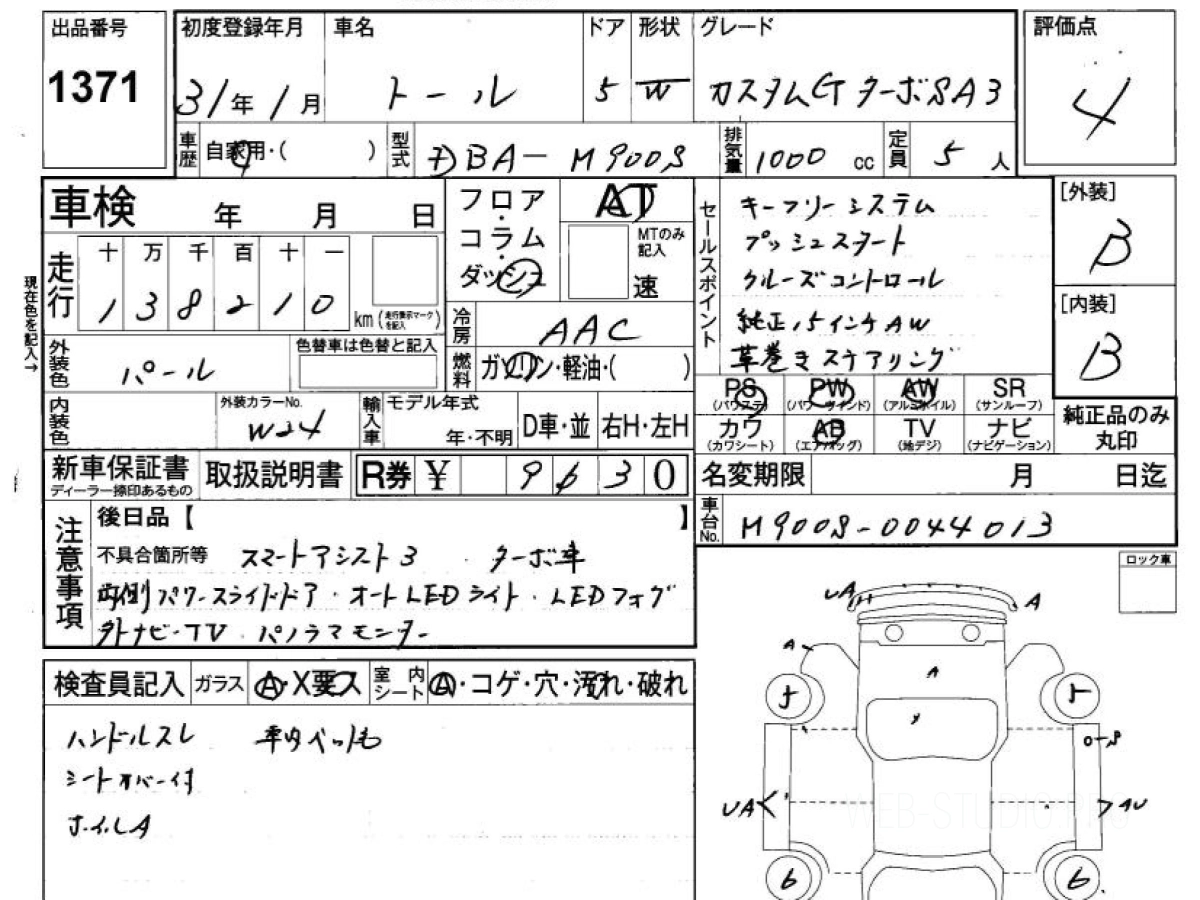 出品番号
1371
初度登録年月
31年1月
車名
トール
ドア
5
形状
W
グレード
カスタムG ターボSA3
評価点
4
車歴
自家用・( )
型式
DBA-M900S
排気量
1000 cc
定員
5 人
車検 年 月 日
フロア・コラム・ダッシュ
AT
MTのみ記入
速
セールスポイント
キーフリーシステム
プッシュスタート
クルーズコントロール
純正15インチAW
革巻きステアリング
[外装]
B
[内装]
B
現在色を記入→
走行
十 万 千 百 十 一
1 3 8 2 1 0
km(走行表示マークを記入)
冷房
AAC
外装色
パール
色替車は色替と記入
燃料
ガソリン・軽油・( )
PS
(パワステ)
PW
(パワーウィンド)
AW
(アルミホイル)
SR
(サンルーフ)
カワ
(カワシート)
AB
(エアバッグ)
TV
(地デジ)
ナビ
(ナビゲーション)
純正品のみ
丸印
内装色
外装カラーNo.
W24
輸入車
モデル年式
年・不明
D車・並
右H・左H
新車保証書
ディーラー捺印あるもの
取扱説明書
R券 ¥ 9630
名変期限 月 日迄
車台No.
M900S-0044013
注意事項
後日品【 】
不具合箇所等 スマートアシスト3 ターボ車
両側パワースライドドア・オートLEDライト・LEDフォグ
外ナビ・TV・パノラマモニター
ロック車
検査員記入
ガラス
A・X要ス
室内シート
A・コゲ・穴・汚れ・破れ
ハンドルスレ 車内ペット毛
シートカバー付
ホイルA
UA
A
A
A
5
5
UA
AU
6
6
WEB-STUDIO.PRO